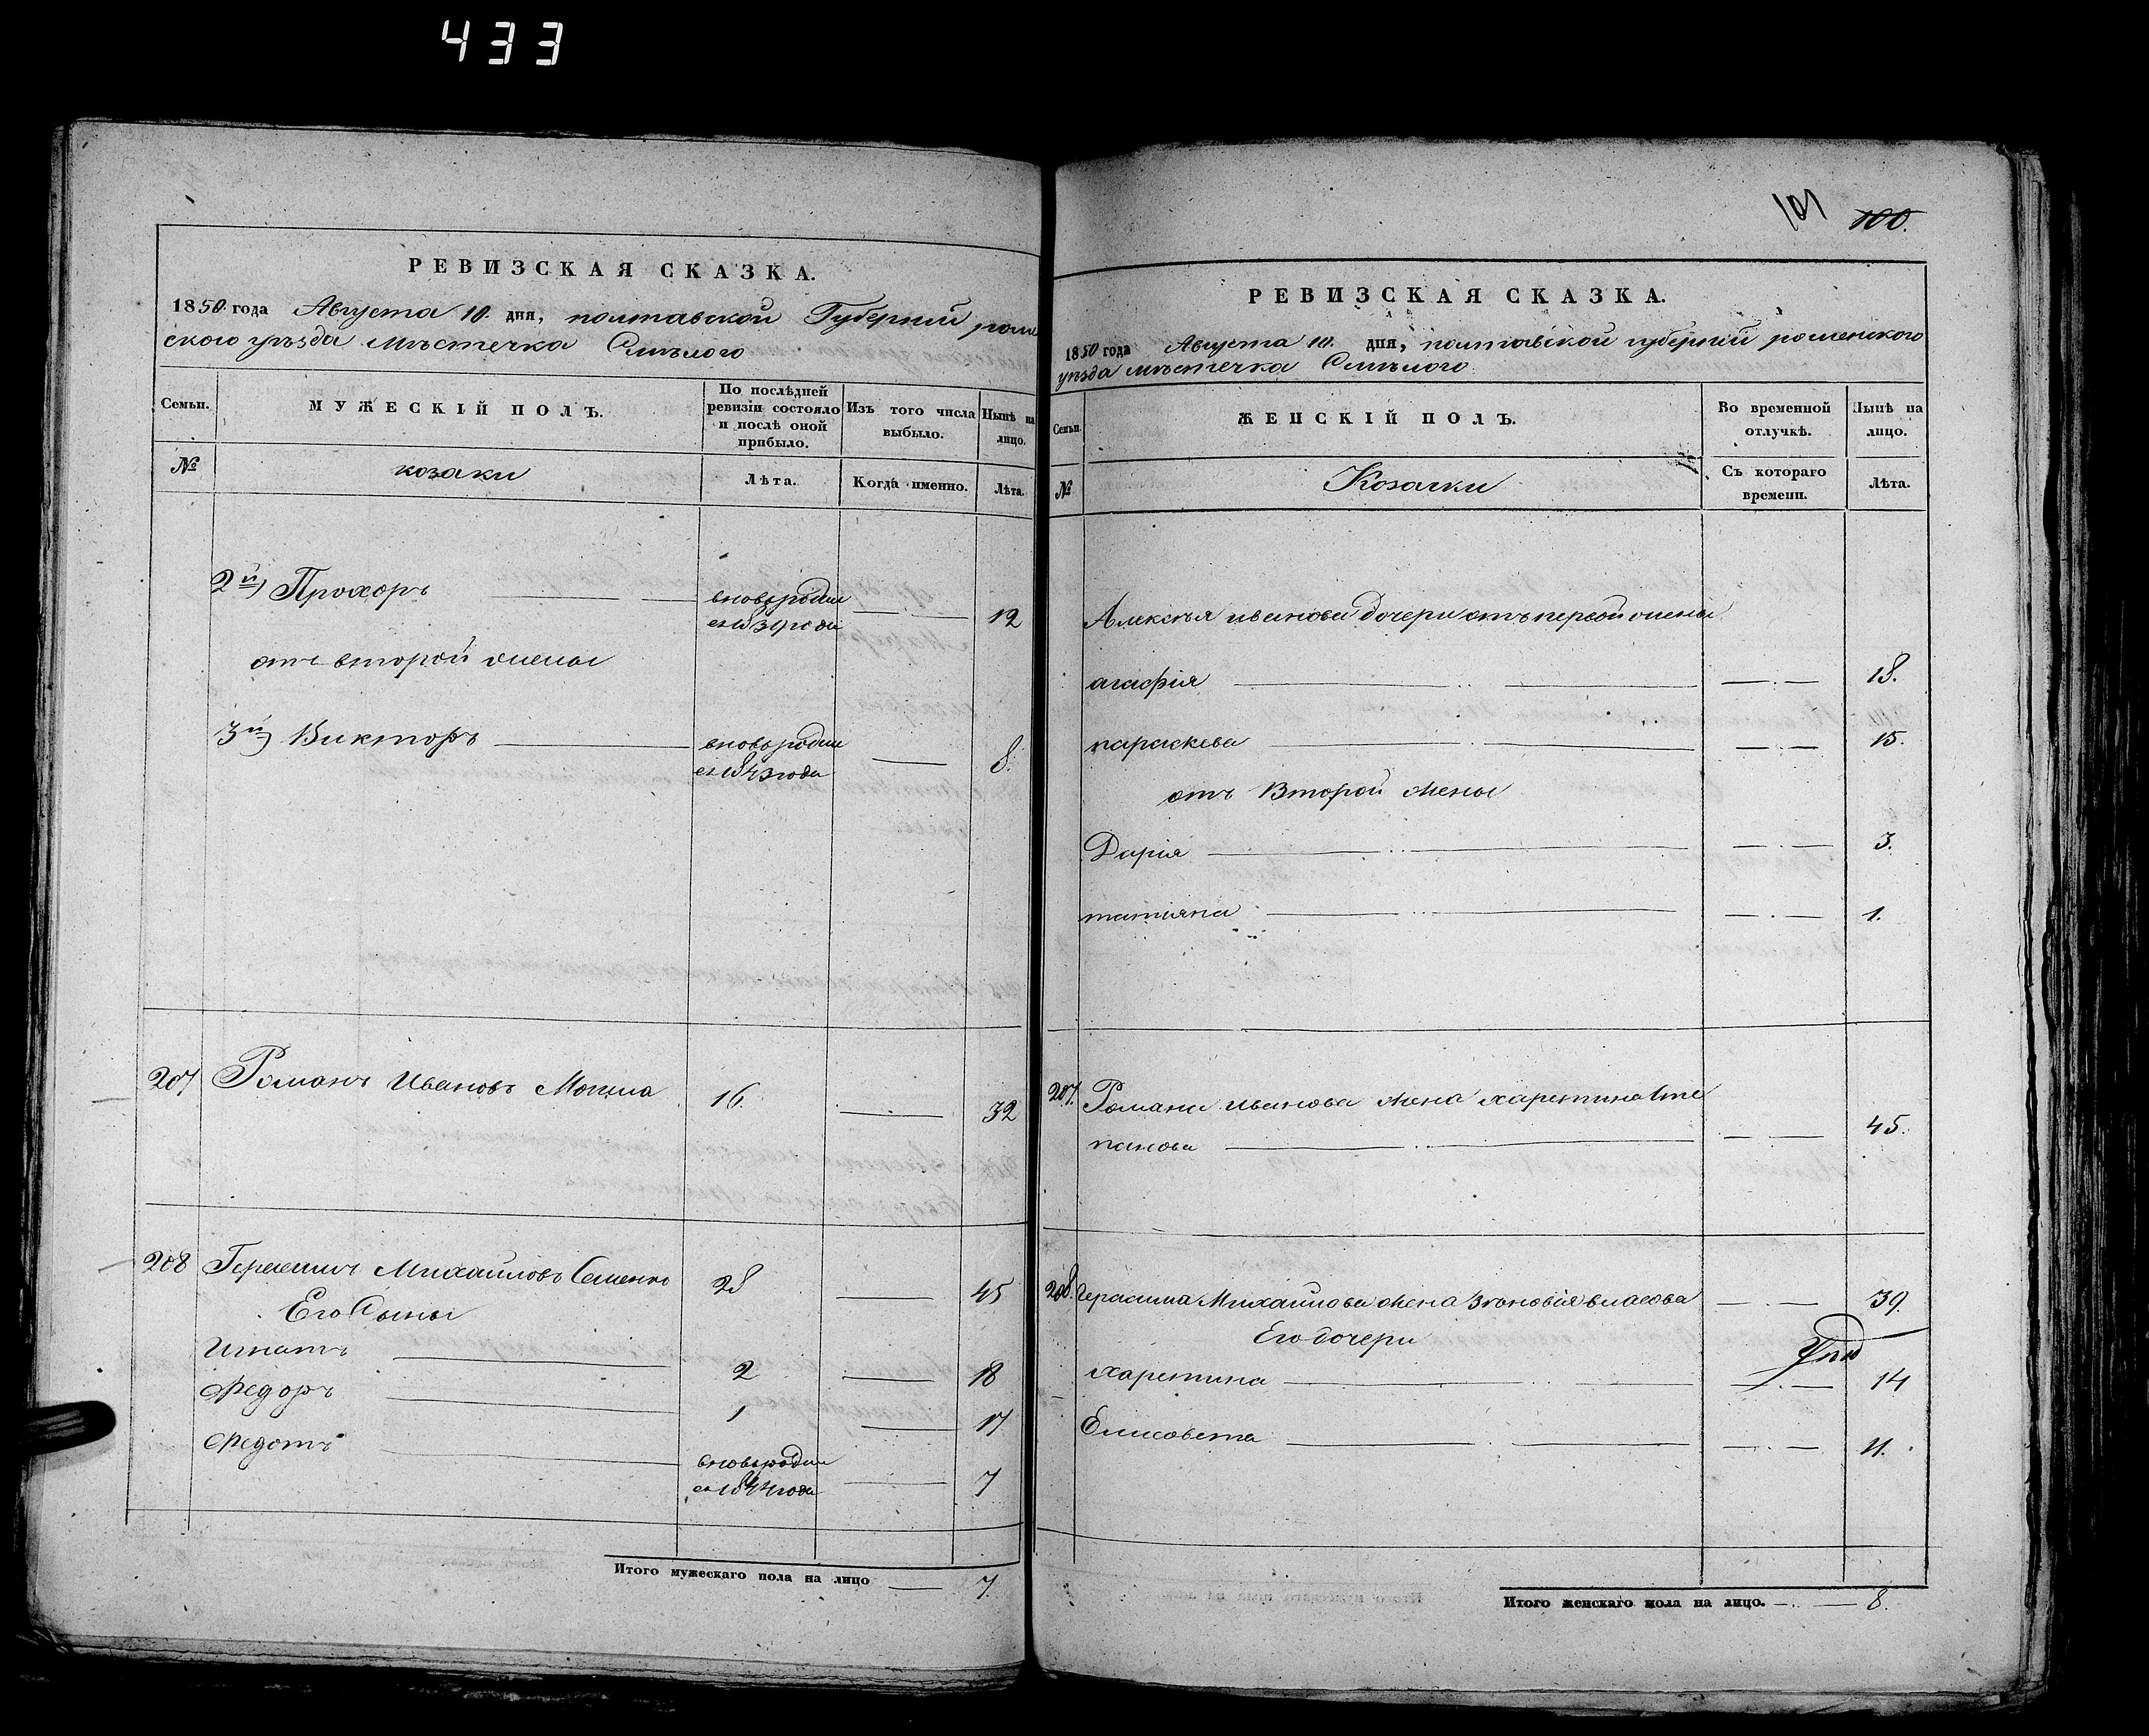 433
РЕВИЗСКАЯ СКАЗКА.
1850 года Августа 10 дня, полтавской Губерній ромен
ского уѣзда мѣстечка Смѣлого
Семьи. МУЖЕСКІЙ ПОЛЪ. По послѣдней ревизіи состояло и послѣ оной прибыло. Изъ того числа выбыло. Нынѣ на лицо.
№ козаки Лѣта. Когда именно. Лѣта.
2й Прохоръ вновь родил
ся 1839 года 12
отъ второй жены
3й Викторъ вновь родил
ся 1843 года 8.
207 Романъ Ивановъ Могила 16. 32
208 Герасимъ Михайловъ Семенко 28 45
Его Сыны
Игнатъ 2 18
Федоръ 1 17
Федотъ вновь родил
ся 1844 года 7
Итого мужескаго пола на лицо 7.
101 100.
РЕВИЗСКАЯ СКАЗКА.
1850 года Августа 10. дня, полтавской губерній роменского
уѣзда мѣстечка Смѣлого
Семьи. ЖЕНСКІЙ ПОЛЪ. Во временной отлучкѣ. Нынѣ на лицо.
№ Козачки Съ котораго времени. Лѣта.
Алексѣя иванова дочери отъ первой жены
агафія 18.
параскева 15.
отъ Второй жены
Дарія 3.
татіяна 1.
207. Романа иванова жена харитина Сте
панова 45.
208. Герасима Михайлова жена Зѣновія власова 39.
Его дочери
харитина 14
Елисавета 11.
Итого женскаго пола на лицо. 8.